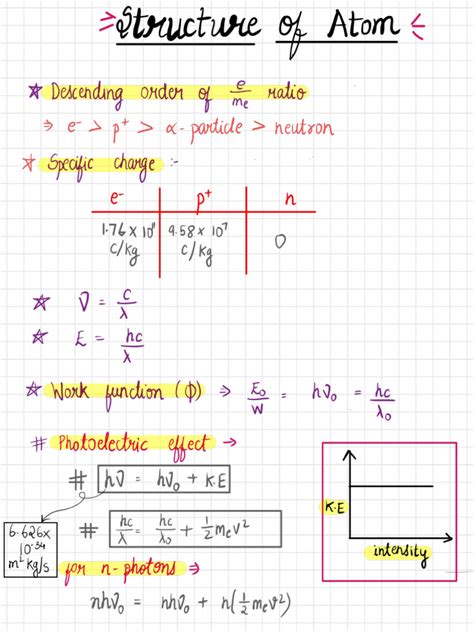 Structure of Atom
☆ Descending order of e/me ratio
⇒ e⁻ > p⁺ > α-particle > neutron
☆ Specific charge :-
e⁻ p⁺ n
1.76 × 10¹¹ C/kg 9.58 × 10⁷ C/kg 0
☆ ν = c/λ
☆ E = hc/λ
☆ Work function (Φ) ⇒ E₀/W = hν₀ = hc/λ₀
# Photoelectric effect →
# hν = hν₀ + K.E
6.626×
10⁻³⁴
m² kg/s
# hc/λ = hc/λ₀ + 1/2 mev²
K.E
intensity
for n-photons ⇒
nhν₀ = nhν₀ + n(1/2 mev²)